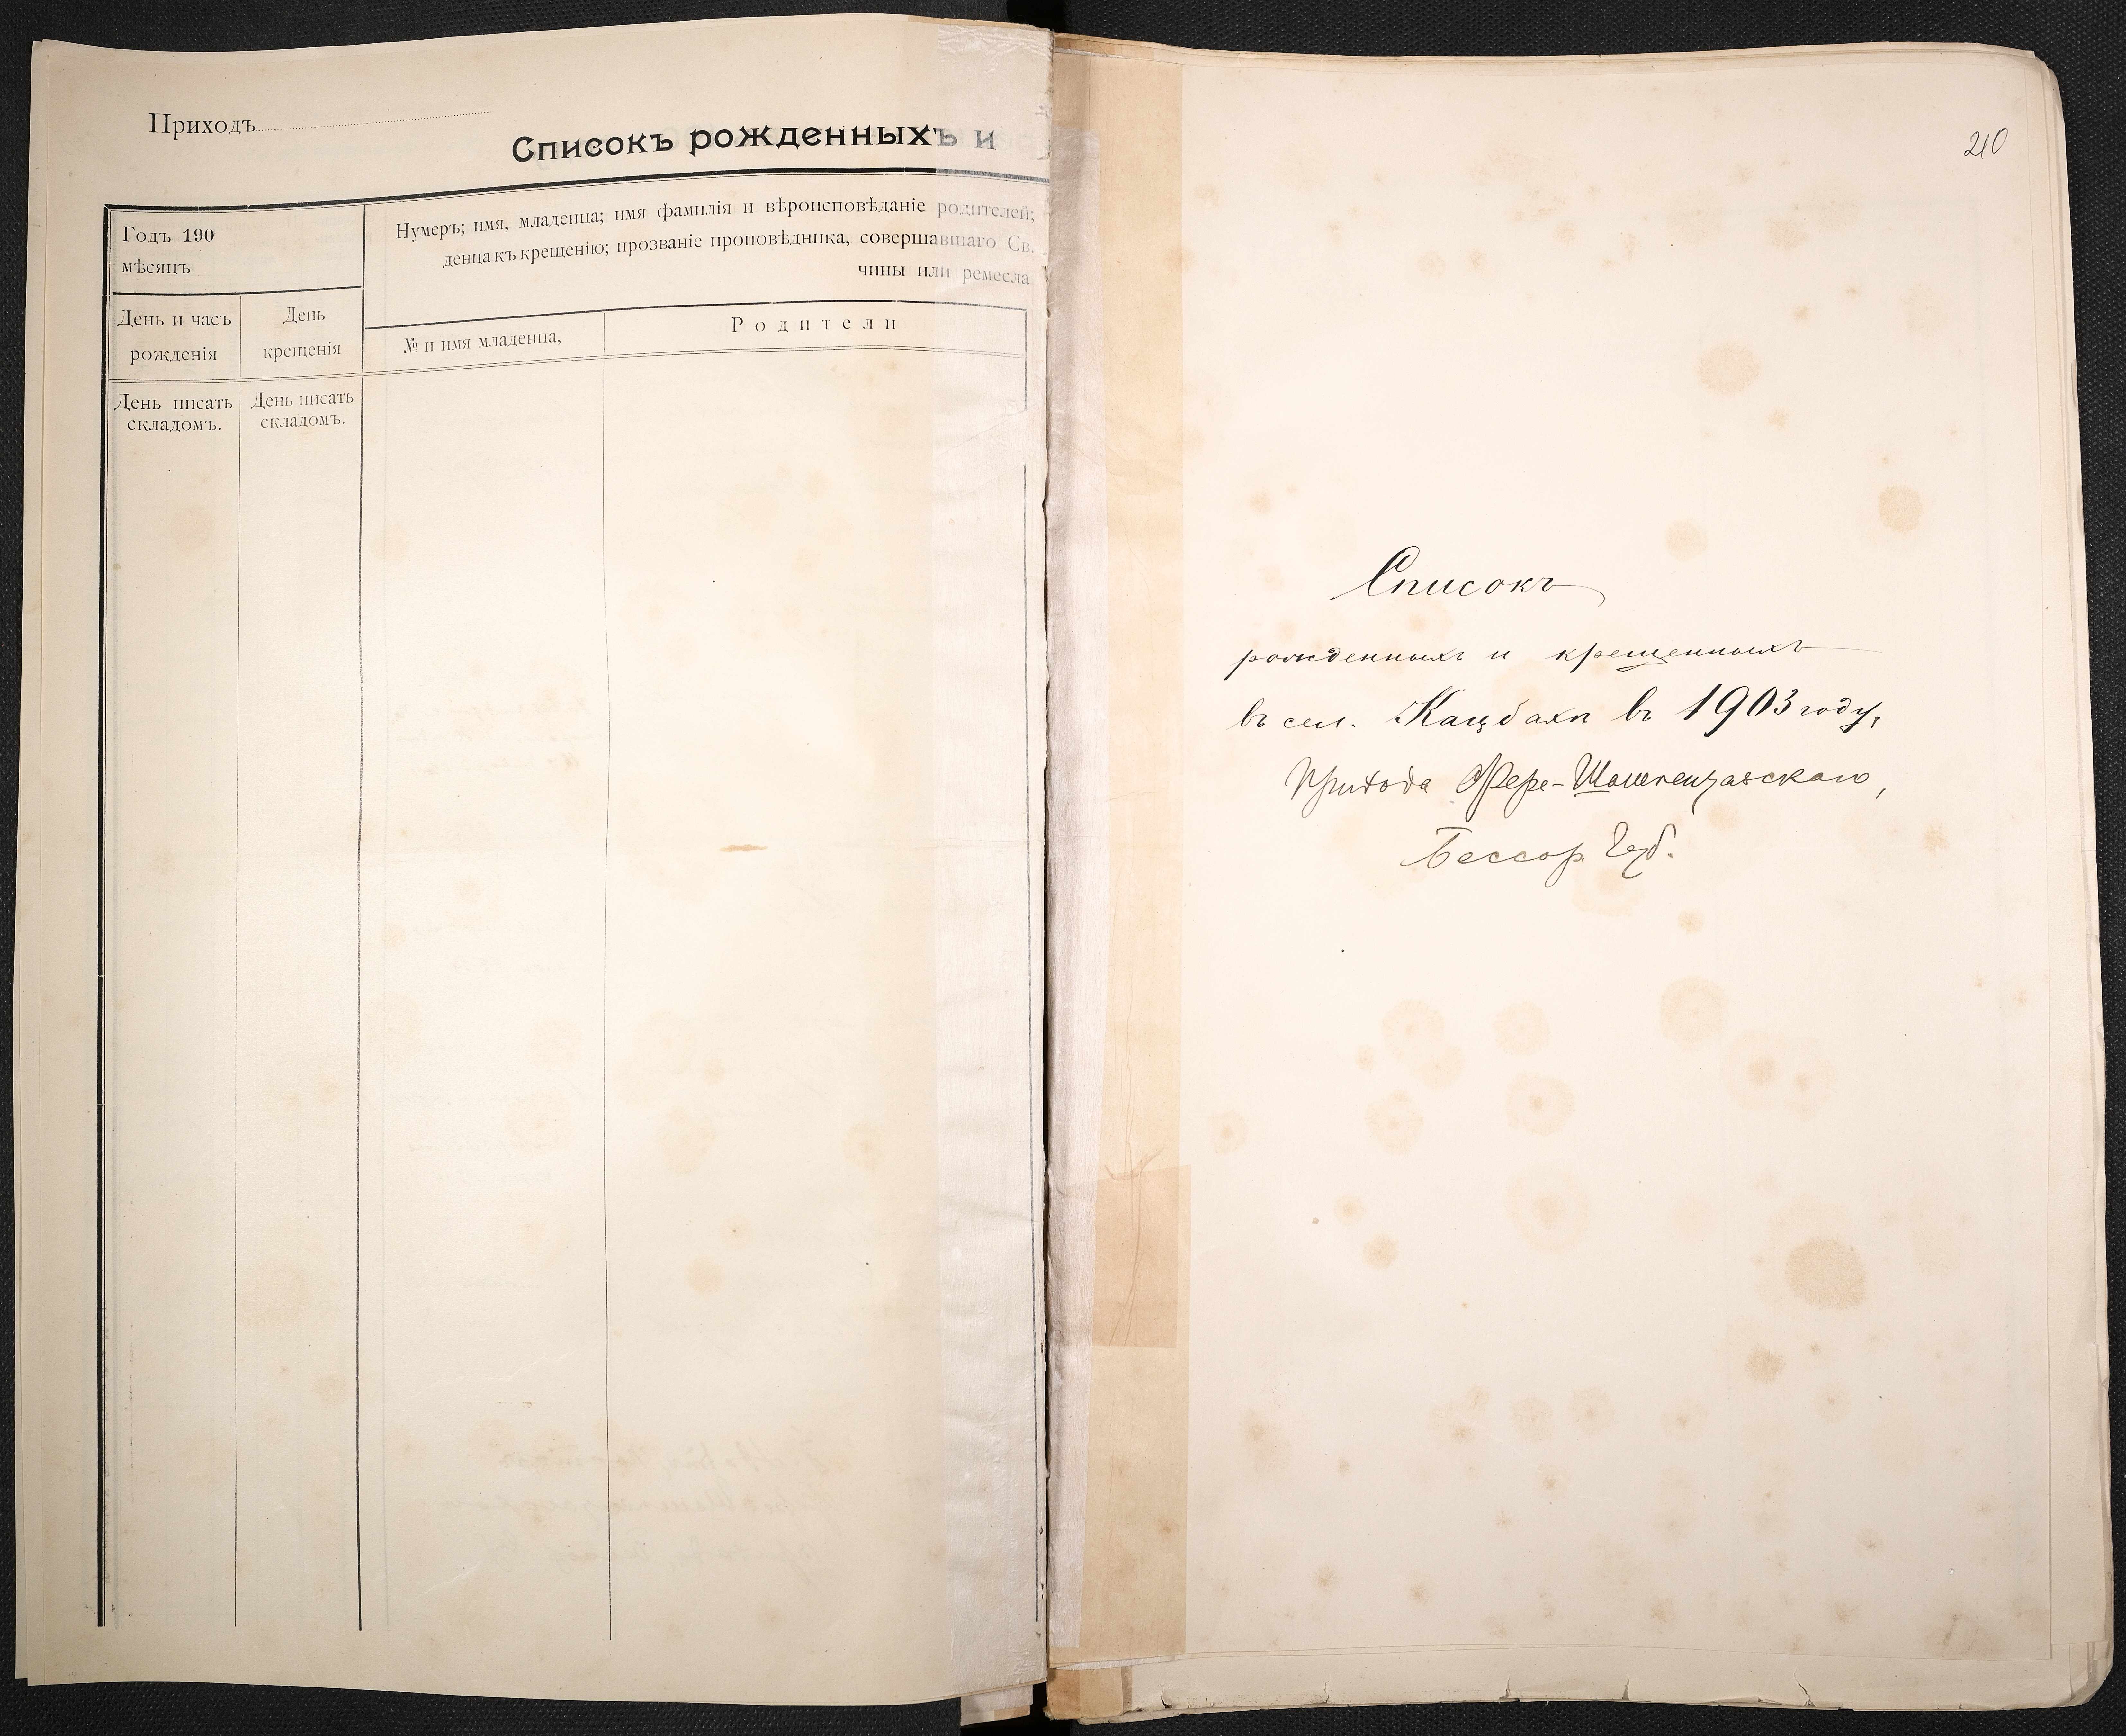 Приходъ
Списокъ рожденныхъ и
Годъ 190
мѣсяцъ
Нумеръ; имя, младенца; имя фамилія и вѣроисповѣданіе родителей;
денца къ крещенію; прозваніе проповѣдника, совершавшаго Св.
чины или ремесла
День и часъ
рожденія
День
крещенія
№ и имя младенца,
Родители
День писать
складомъ.
День писать
складомъ.
210
Списокъ
рожденныхъ и крещенныхъ
въ сел. Кацбахъ въ 1903 году,
Прихода Фере-Шампенуазскаго,
Бессар. Губ.